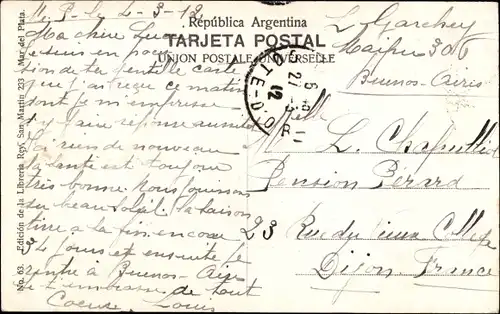 M. P. le 4-3-12
Ma chère
suis en
tion de ta gentille carte
que j'ai reçue ce matin
dont je m'empresse
d'y faire réponse
rien de nouveau
la santé est toujours
très bonne nous jouissons
du beau soleil. la saison
tire à la fin encore
jours et ensuite je
rentre à Buenos-Aires
Je t'embrasse de tout
Coeur. Louis
República Argentina
TARJETA POSTAL
UNION POSTALE UNIVERSELLE
L. Garchey
Maipu 306
Buenos-Aires
Melle
L.
Pension Berard
23 Rue du Vieux Collège
Dijon. France
No. 63. Edición de la Librería Rey, San Martin 233 - Mar del Plata.